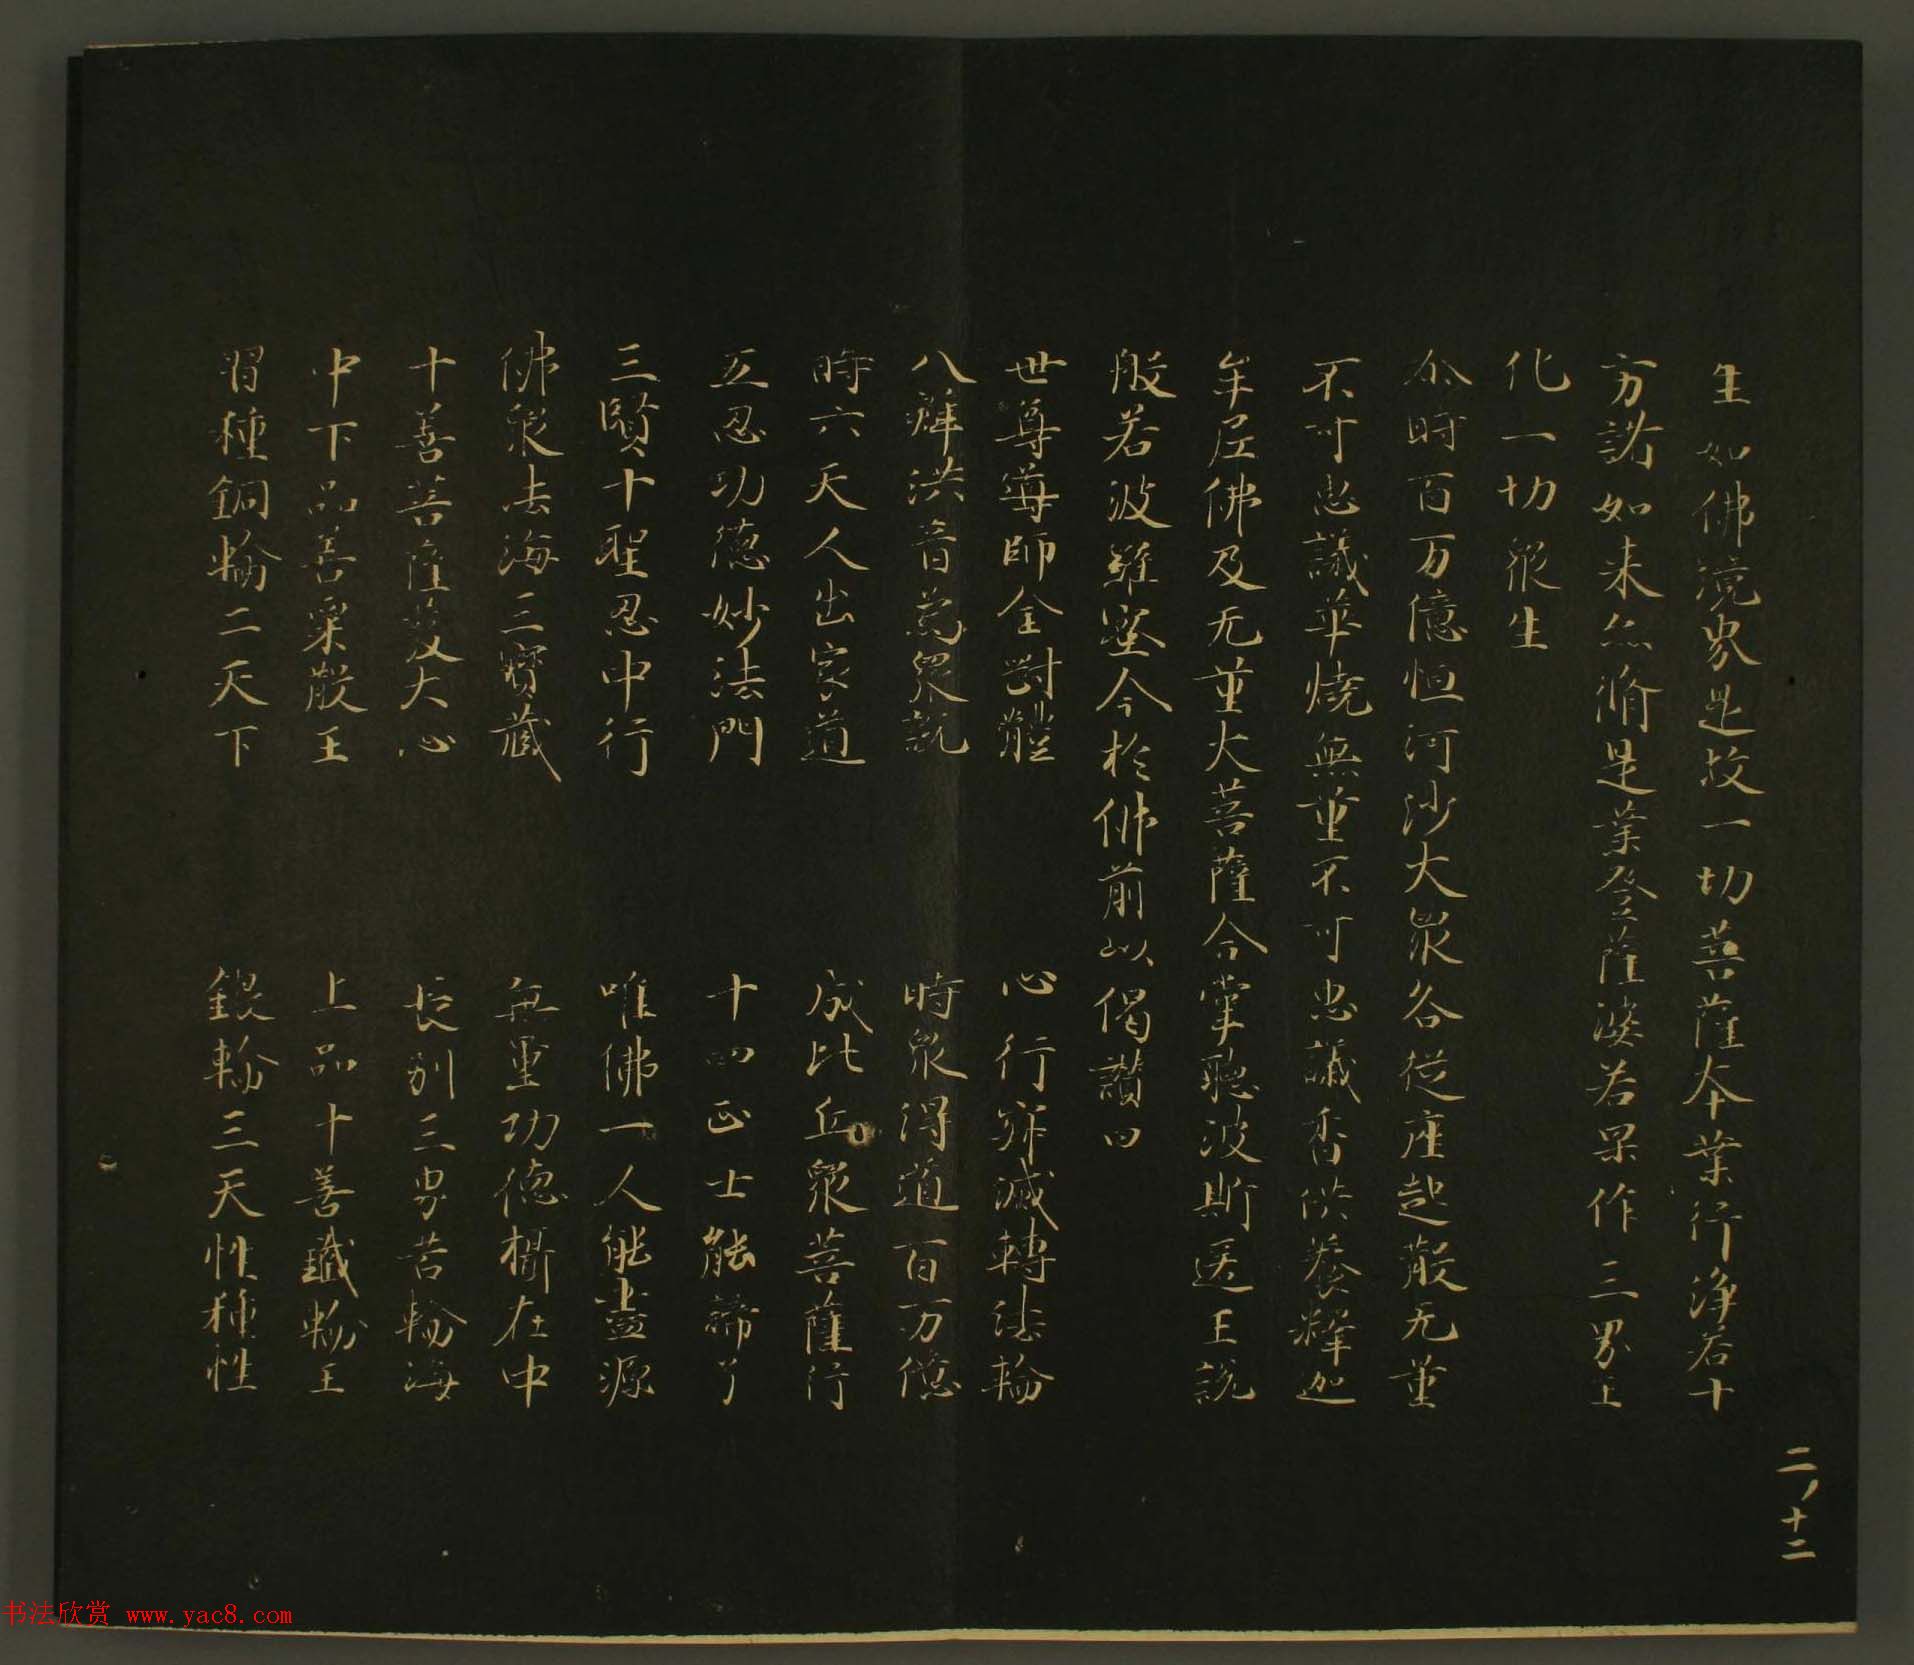 生如佛境界是故一切菩薩本業行淨若十
方諸如来亦脩是業登薩婆若果作三界王
化一切衆生
尒時百万億恒河沙大衆各従座起散无量
不可思議華燒無量不可思議香供養釋迦
牟尼佛及无量大菩薩合掌聽波斯匿王說
般若波羅蜜今於佛前以偈讚曰
世尊導師金剛體 心行寂滅轉法輪
八辯洪音為衆說 時衆得道百万億
時六天人出家道 成比丘衆菩薩行
五忍功德妙法門 十四正士能諦了
三賢十聖忍中行 唯佛一人能盡源
佛衆法海三寶藏 無量功德攝在中
十善菩薩發大心 長別三界苦輪海
中下品善粟散王 上品十善鐵輪王
習種銅輪二天下 銀輪三天性種性
二ノ十二
书法欣赏 www.yac8.com